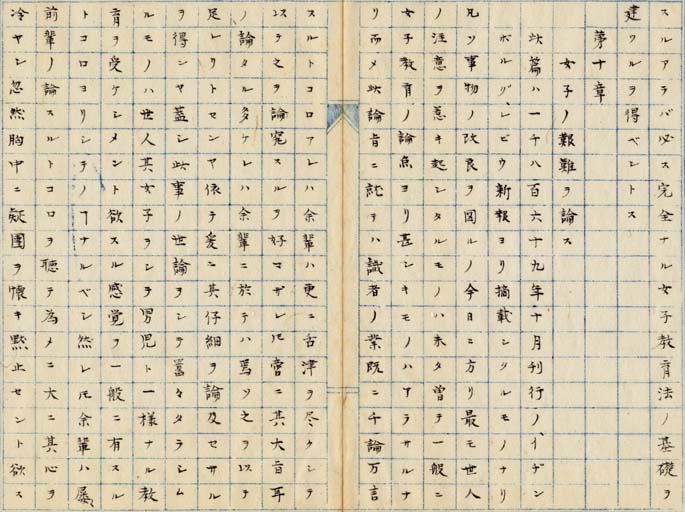 スルアラバ必ス完全ナル女子教育法ノ基礎ヲ
建ツルヲ得ベシトス
第十章
女子ノ艱難ヲ論ス
此篇ハ一千八百六十九年十月刊行ノハイデン
ボルグレビウ新報ヨリ摘載シタルモノナリ
凡ソ事物ノ改良ヲ図ルノ今日ニ方リ最モ世人
ノ注意ヲ惹キ起シタルモノハ未タ曽テ一般ニ
女子教育ノ論点ヨリ甚シキモノハアラサルナ
リ而メ此論旨ニ就ヲハ識者ノ業既ニ千論万言
スルトコロアレハ余輩ハ更ニ舌津ヲ尽クシテ
以テ之ヲ論究スルヲ好マザレ𪜈啻ニ其大旨耳
ノ論タル多ケレハ余輩ニ於テハ焉ソ之ヲ以テ
足レリトセンヤ依テ爰ニ其仔細ヲ論及セサル
ヲ得ンヤ蓋シ此事ノ世論ヲシテ囂々タラシム
ルモノハ世人其女子ヲシテ男児ト一様ナル教
育ヲ受ケシメント欲スル感覚ヲ一般ニ有スル
トコロヨリシテノヿナルベシ然レ𪜈余輩ハ屡
前輩ノ論スルトコロヲ聴テ為メニ大ニ其心ヲ
冷ヤシ忽然胸中ニ疑団ヲ懐キ黙止セント欲ス